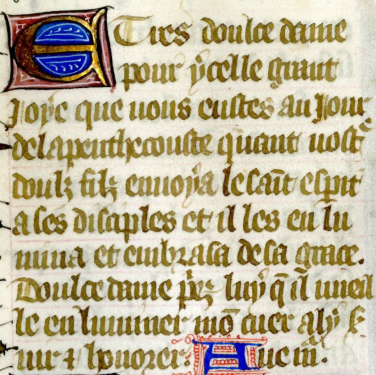 E Tres doulce dame
pour ycelle grant
Joye que vous eustes au Jour
de la penthecouste quant vostre
doulz filz envoya le saint espit
a ses disciples et il les en lu
mina et embrasa de sa grace.
Doulce dame prez luy q il vueil
le enluminer mō cuer a ly s
uir ⁊ honorer. Aue m̄.